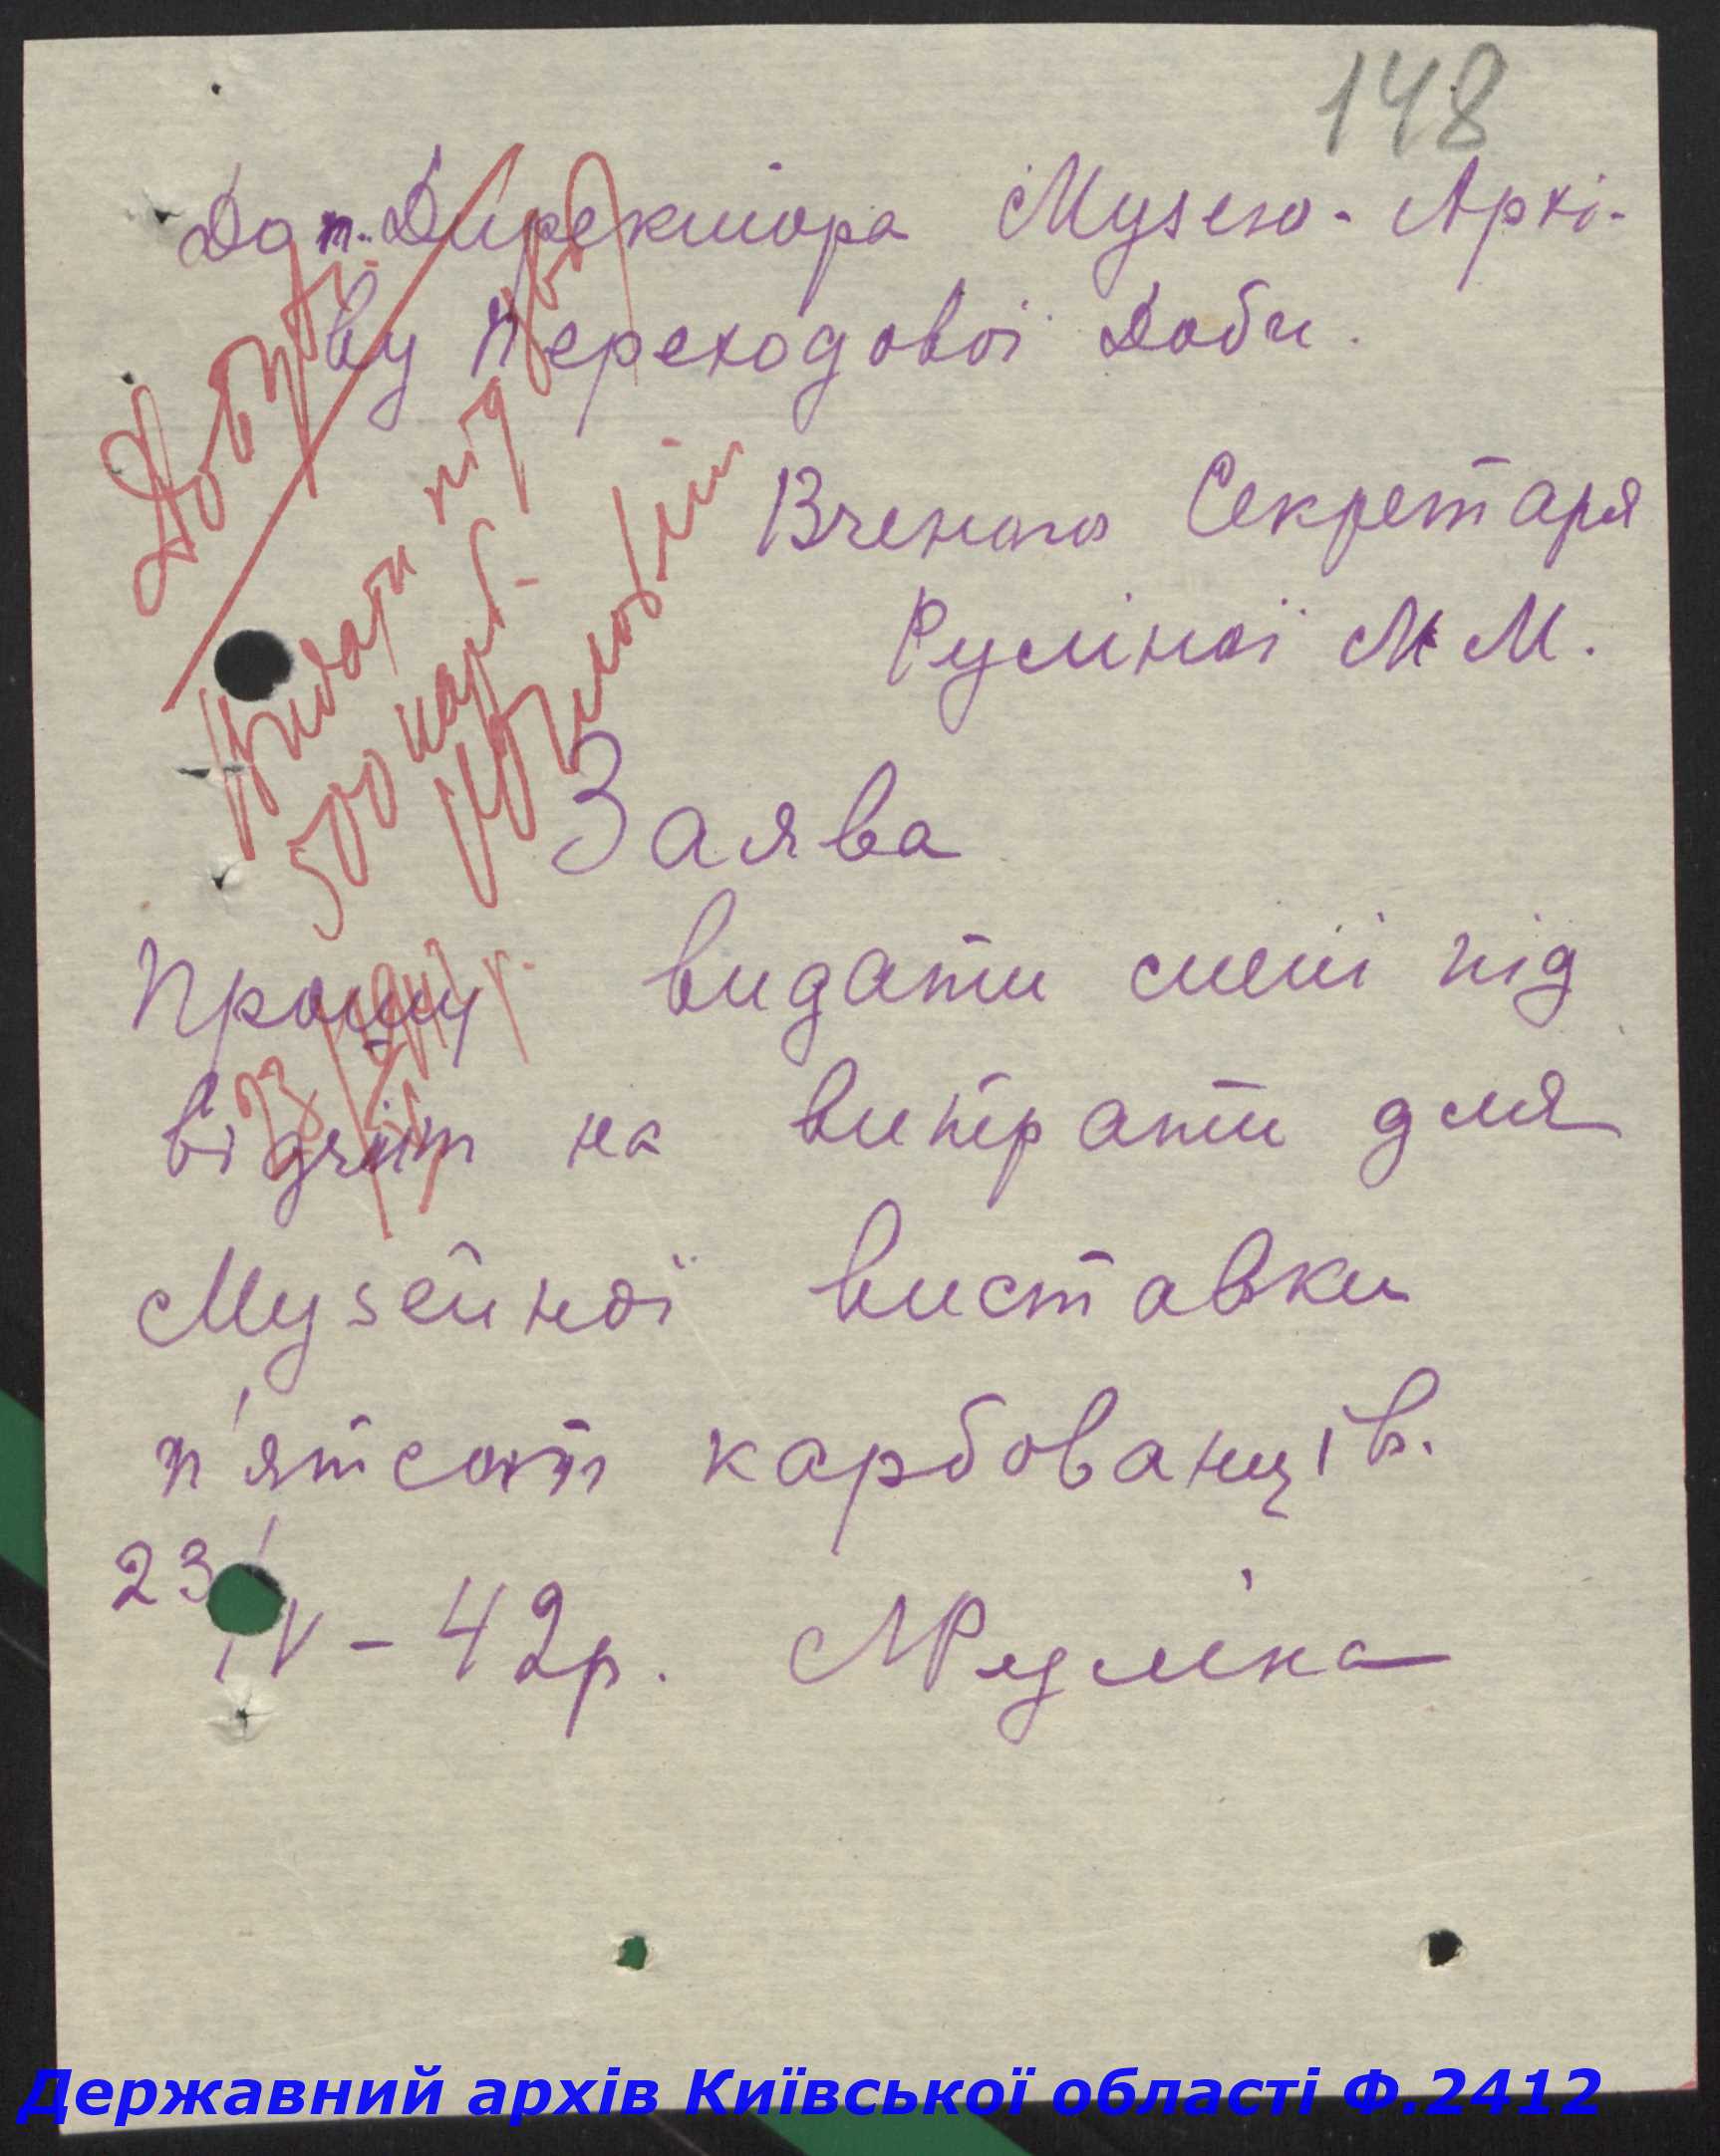 148
До п. Директора Музею-Архі-
ву Переходової Доби.
Вченого Секретаря
Руліної М М.
Заява
Прошу видати мені під
відчіт на витрати для
Музейної виставки
п'ятсот карбованців.
23/IV – 42р. МРуліна
Видати під
500 карб.
1942 р.
Державний архів Київської області Ф.2412